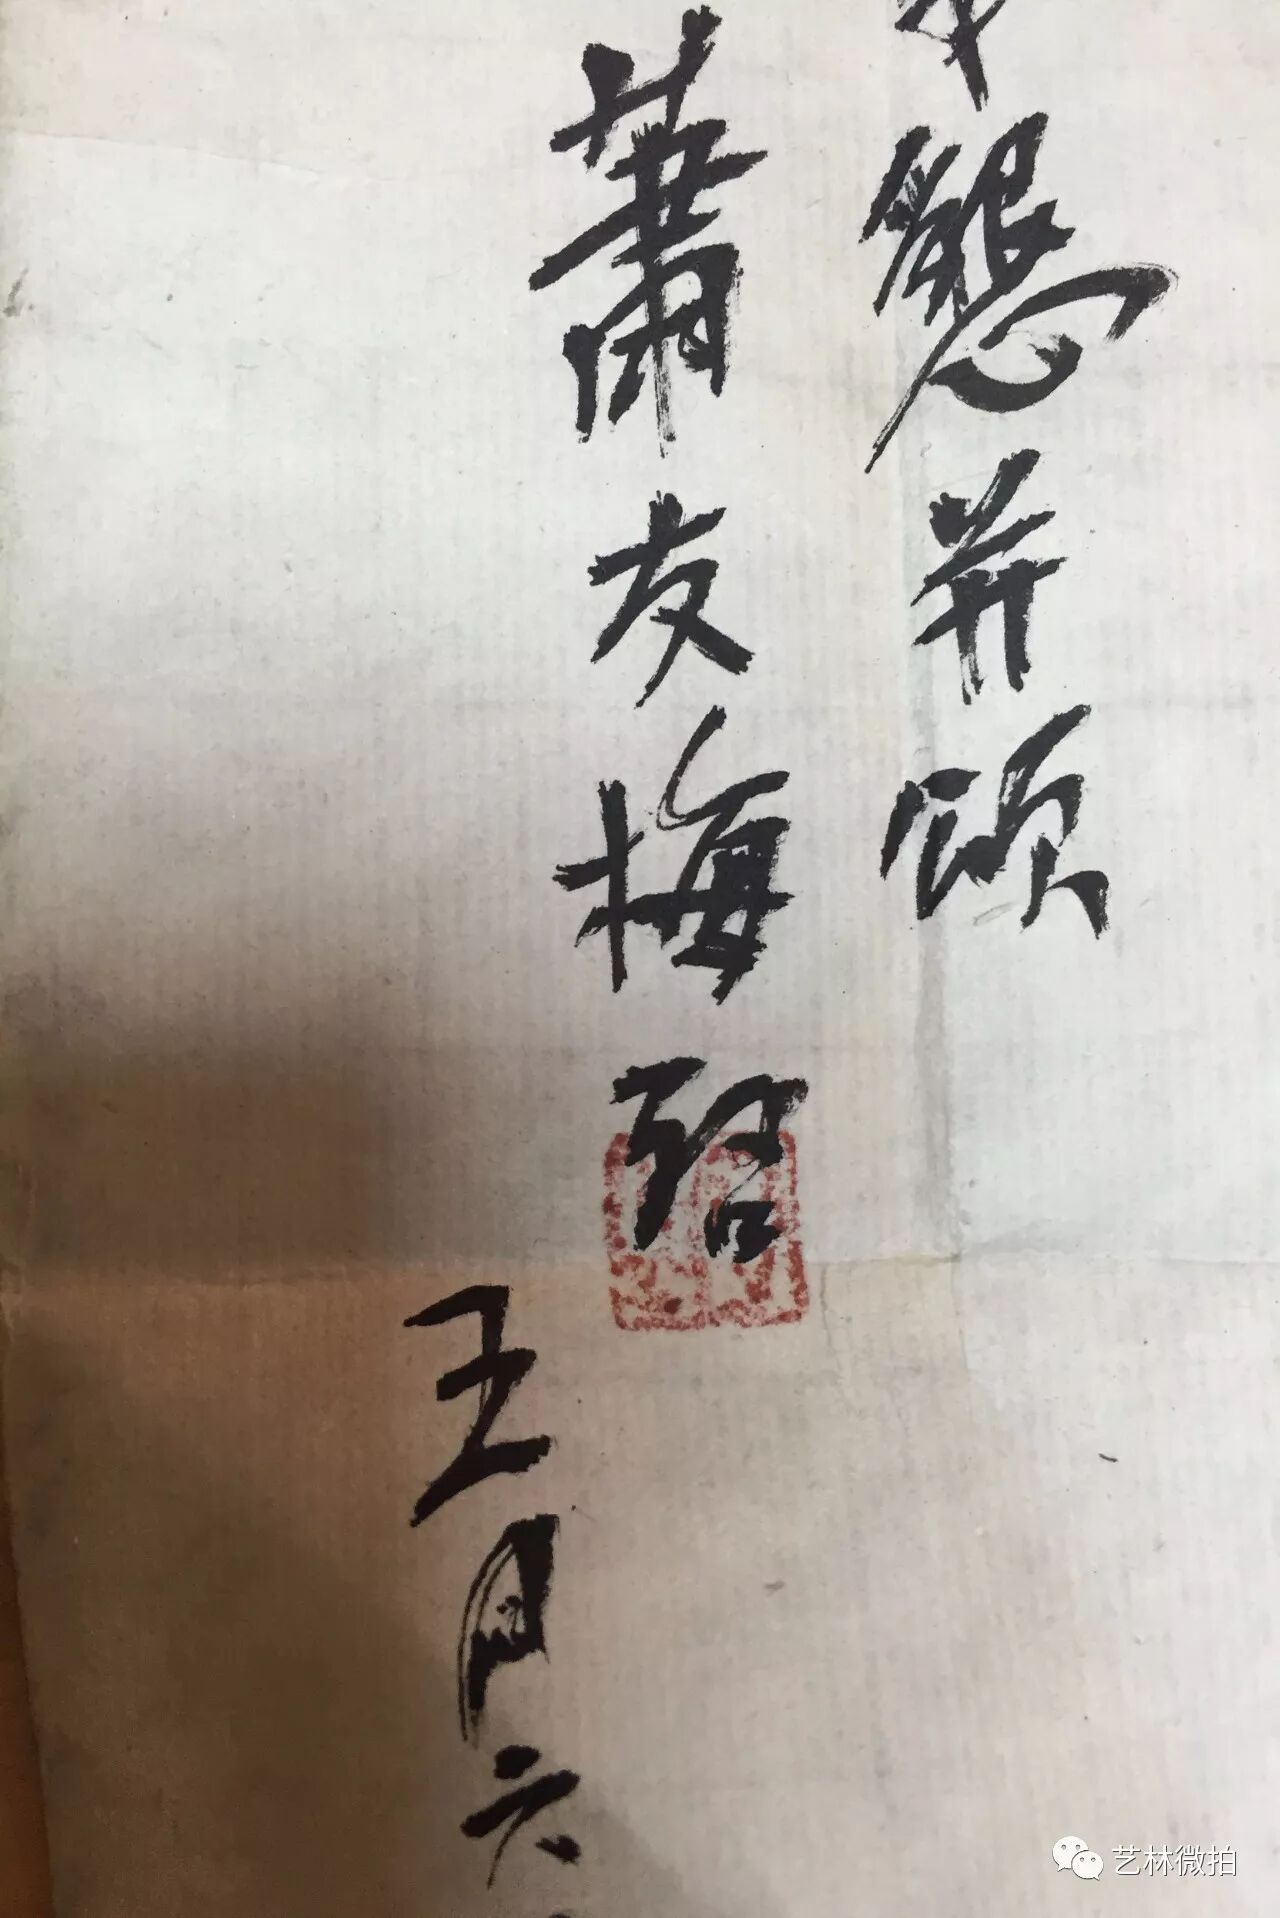 懇并頌
蕭友梅启
五月六
艺林微拍